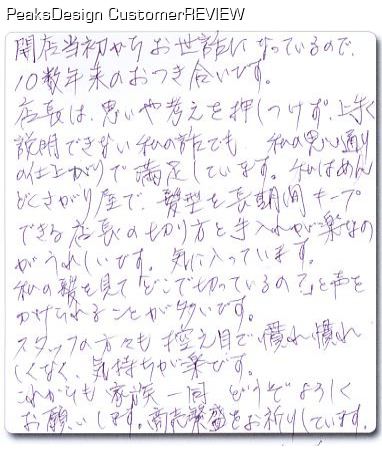 PeaksDesign CustomerREVIEW
開店当初からお世話になっているので、
10数年来のおつき合いです。
店長は、思いや考えを押しつけず、上手く
説明できない私の話でも 私の思い通り
の仕上がりで満足しています。私はめん
どくさがり屋で、髪型を長期間キープ
できる店長の切り方と手入れが楽なの
がうれしいです。気に入っています。
私の髪を見て「どこで切っているの?」と声を
かけられることが多いです。
スタッフの方々も控え目で慣れ慣れ
しくなく、気持ちが楽です。
これからも家族一同 どうぞよろしく
お願いします。商売繁盛をお祈りしています。